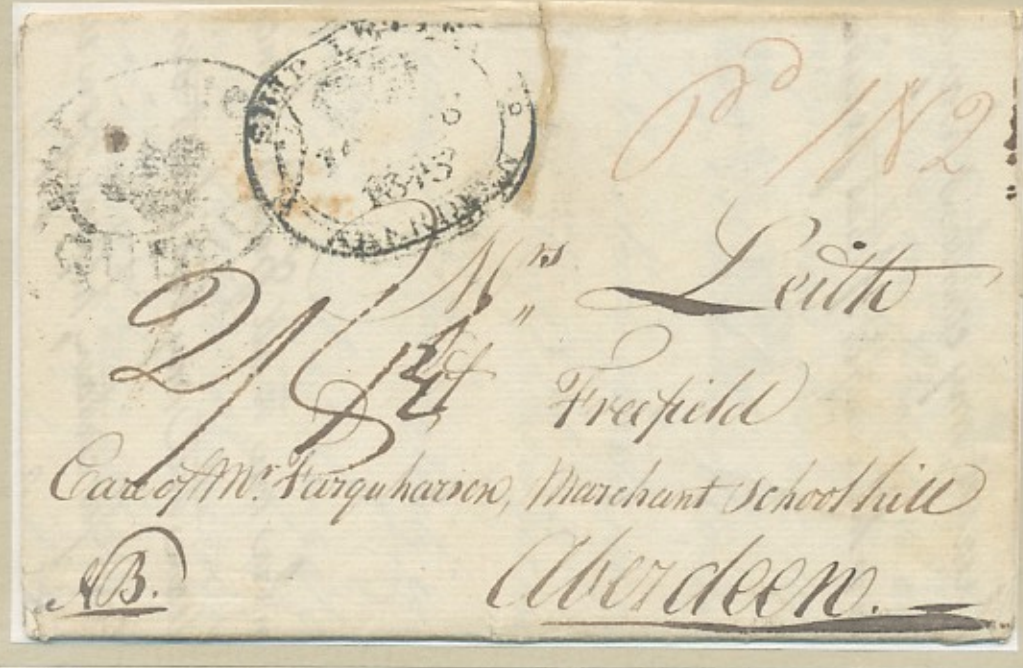 SHIP L
1843
ABERDEEN
Pd 1/N 2
Mrs Leith
2/ 
Freefield
Care of Mr. Farquharson, Marchant School hill
Aberdeen.
NB.